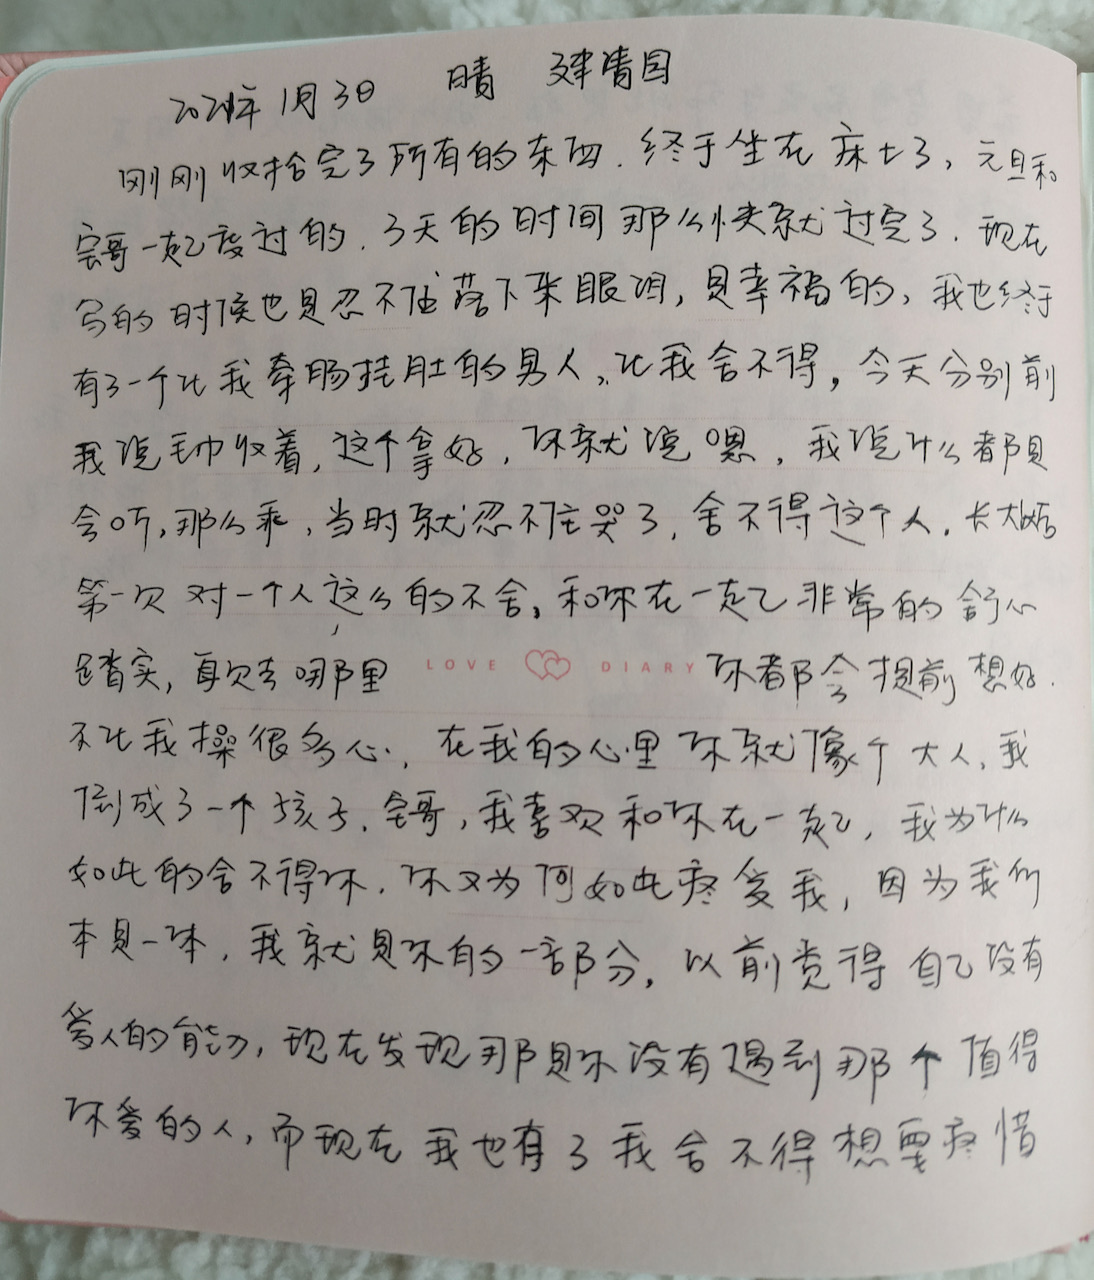 2021年1月3日 晴 建清园
刚刚收拾完了所有的东西.终于坐在床上了,元旦和
宝哥一起度过的.3天的时间那么快就过完了.现在
写的时候也是忍不住落下来眼泪,是幸福的,我也终于
有了一个让我牵肠挂肚的男人,让我舍不得,今天分别前
我说毛巾收着,这个拿好,你就说嗯,我说什么都是
会听,那么乖,当时就忍不住哭了,舍不得这个人.长大后
第一次对一个人这么的不舍,和你在一起非常的舒心
踏实,每次去哪里 LOVE DIARY 你都会提前想好.
不让我操很多心,在我的心里你就像个大人,我
倒成了一个孩子.宝哥,我喜欢和你在一起,我为什么
如此的舍不得你.你又为何如此疼爱我,因为我们
本是一体,我就是你的一部分,以前觉得自己没有
爱人的能力,现在发现那是你没有遇到那个值得
你爱的人,而现在我也有了我舍不得想要疼惜